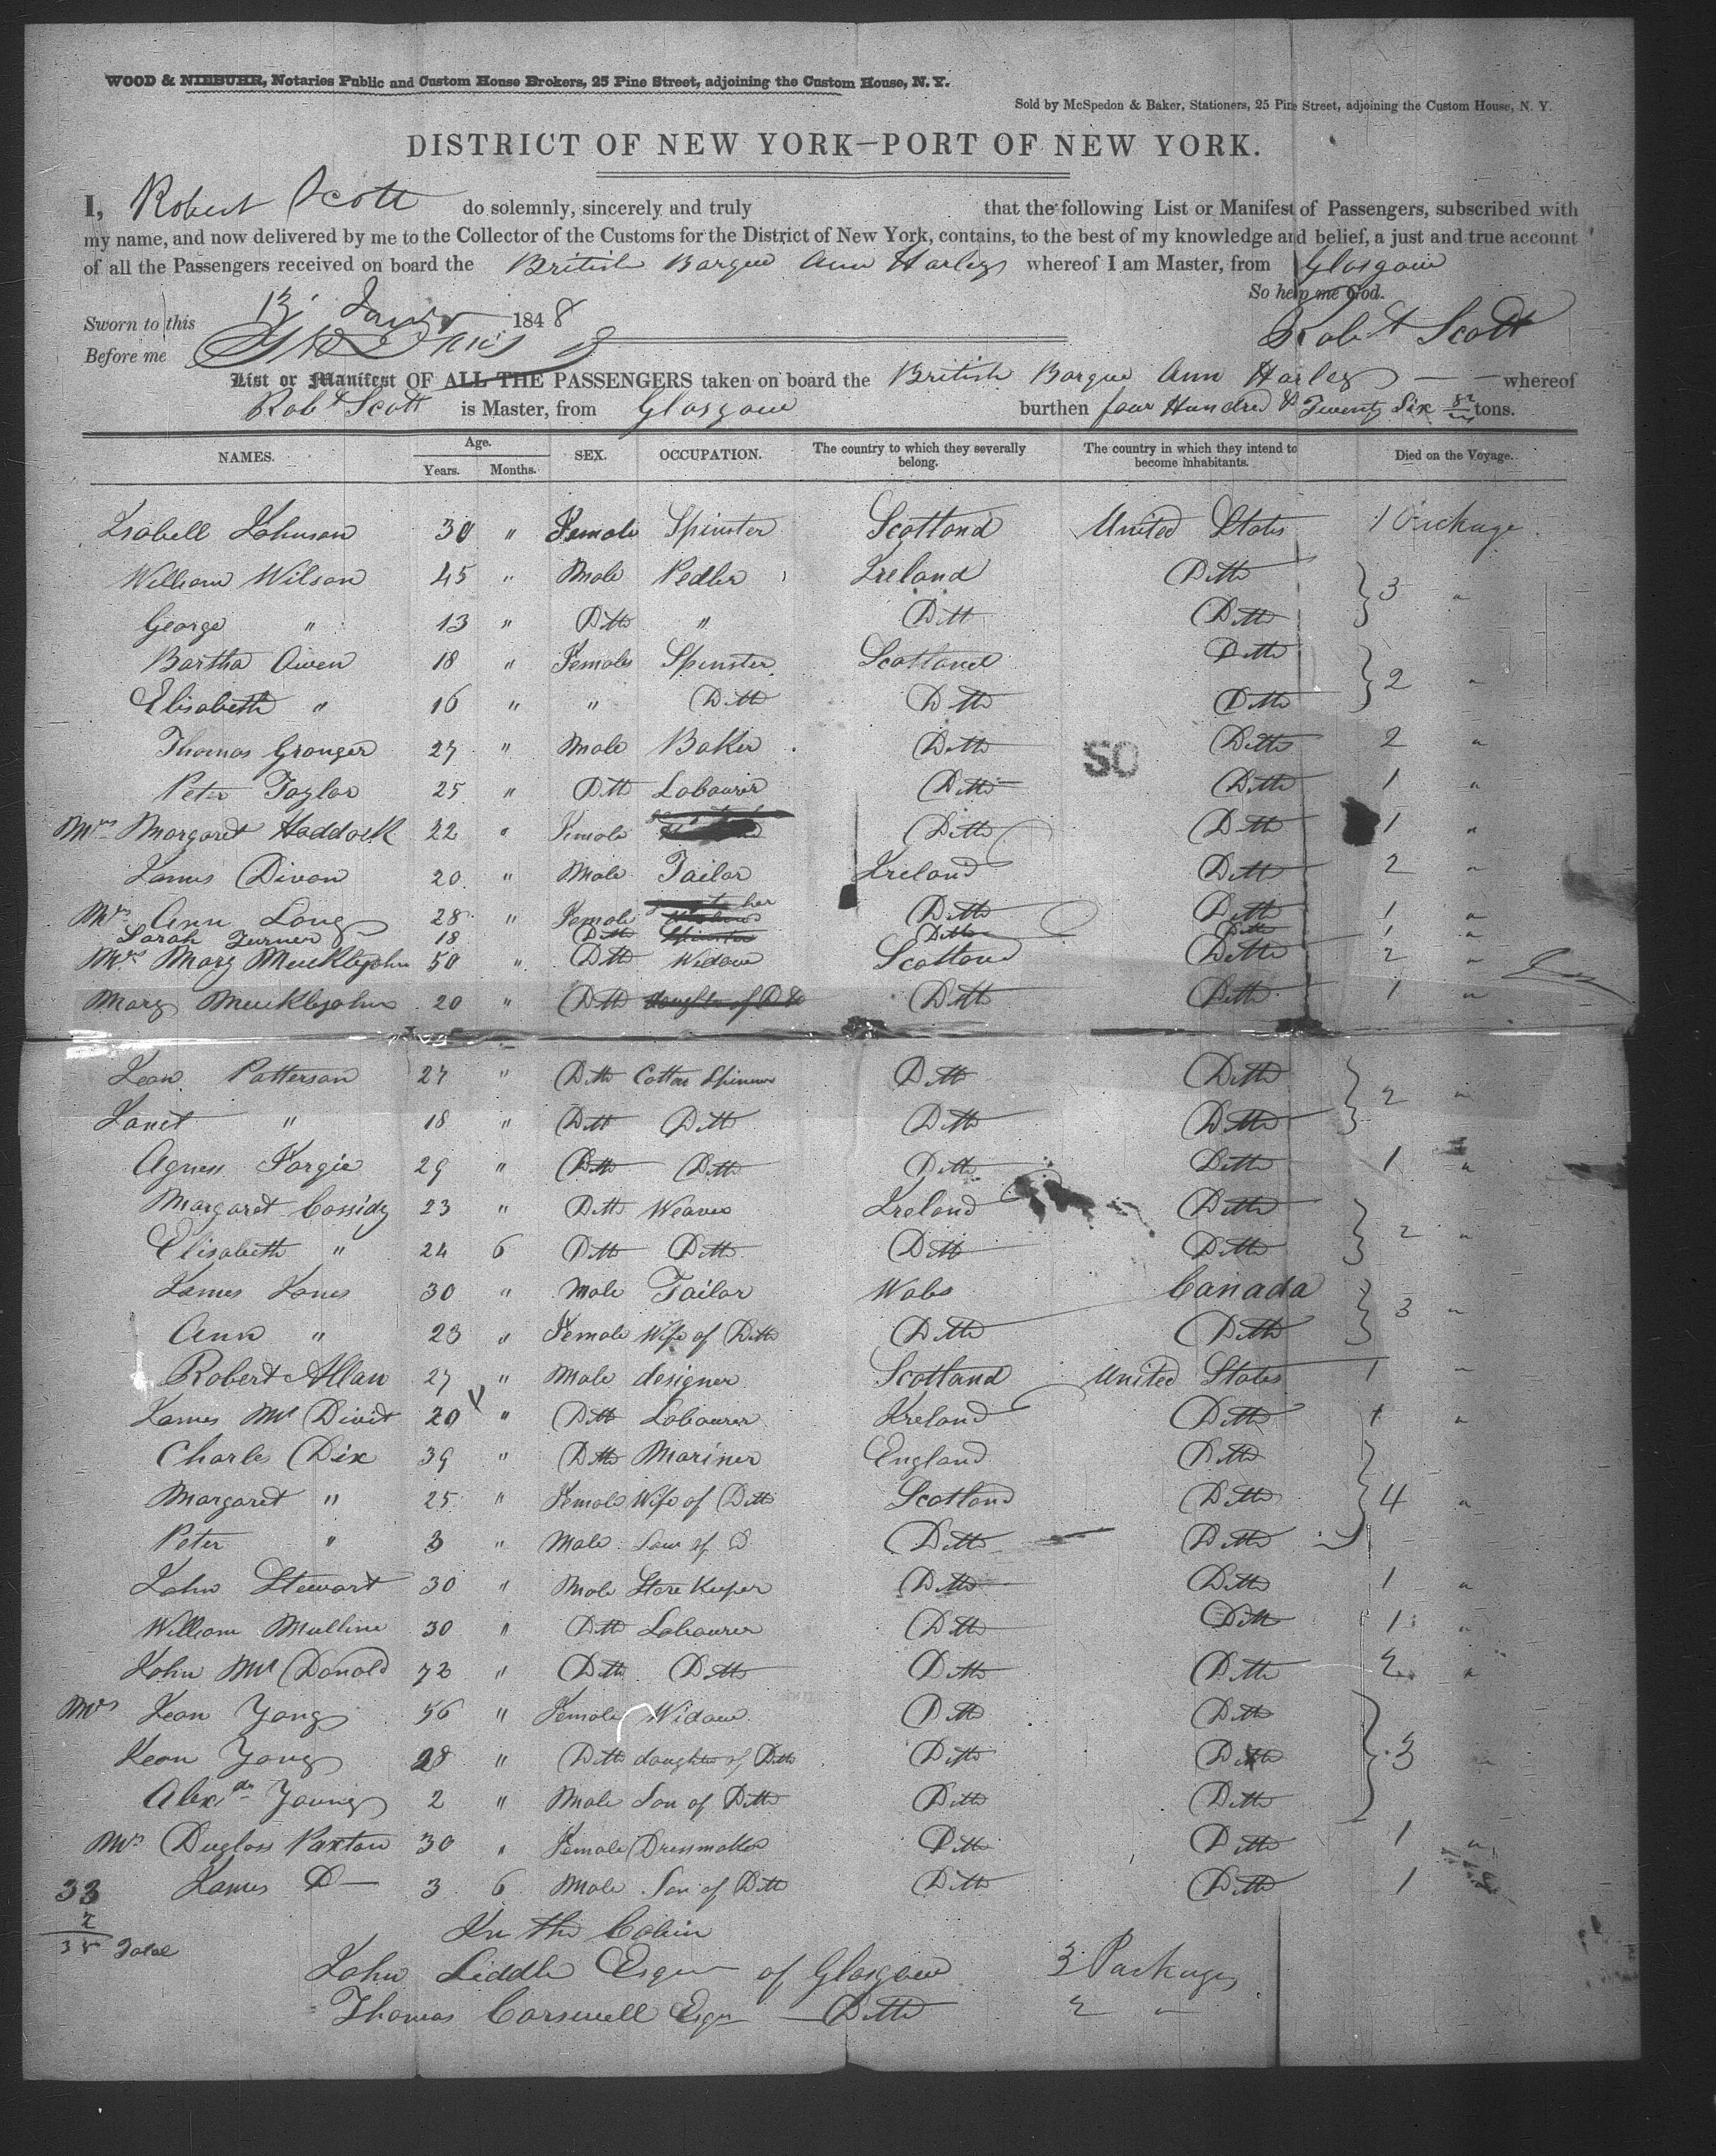 WOOD & NIEBUHR, Notaries Public and Custom House Brokers, 25 Pine Street, adjoining the Custom House, N. Y.
Sold by McSpedon & Baker, Stationers, 25 Pine Street, adjoining the Custom House, N. Y.
DISTRICT OF NEW YORK—PORT OF NEW YORK.
I, Robert Scott do solemnly, sincerely and truly that the following List or Manifest of Passengers, subscribed with
my name, and now delivered by me to the Collector of the Customs for the District of New York, contains, to the best of my knowledge and belief, a just and true account
of all the Passengers received on board the British Barque Ann Harley whereof I am Master, from Glasgow
So help me God.
Sworn to this 13 Jany 1848 Robt Scott
Before me
List or Manifest OF ALL THE PASSENGERS taken on board the British Barque Ann Harley whereof
Robt Scott is Master, from Glasgow burthen four Hundred & Twenty Six tons.
NAMES. Age. Years. Months. SEX. OCCUPATION. The country to which they severally belong. The country in which they intend to become inhabitants. Died on the Voyage.
Isabell Johnson 30 " Female Spinster Scotland United States 1 Package
William Wilson 45 " Male Pedler Ireland Ditto 3 "
George " 13 " Ditto " Ditto Ditto
Bartha Owen 18 " Female Spinster Scotland Ditto 2 "
Elisabeth " 16 " " Ditto Ditto Ditto
Thomas Granger 27 " Male Baker Ditto Ditto 2 "
SO
Peter Taylor 25 " Ditto Labourer Ditto Ditto 1 "
Mrs Margaret Haddock 22 " Female Ditto Ditto 1 "
James Divon 20 " Male Tailor Ireland Ditto 2 "
Mrs Ann Long 28 " Female Ditto Ditto 1 "
Sarah Turner 18 Ditto Spinster Ditto Ditto 1 "
Mrs Mary Meuklejohn 50 " Ditto Widow Scotland Ditto 2 "
Mary Meuklejohn 20 " Ditto daughter of Ditto Ditto Ditto 1 "
Jean Patterson 27 " Ditto Cotton Spinner Ditto Ditto 2 "
Janet " 18 " Ditto Ditto Ditto Ditto
Agness Forgie 29 " Ditto Ditto Ditto Ditto 1 "
Margaret Cassidy 23 " Ditto Weaver Ireland Ditto 2 "
Elisabeth " 24 6 Ditto Ditto Ditto Ditto
James Jones 30 " Male Tailor Wales Canada 3 "
Ann " 23 " Female Wife of Ditto Ditto Ditto
Robert Allan 27 " Male designer Scotland United States 1 "
James Mc Divit 20 " Ditto Labourer Ireland Ditto 1 "
Charles Dix 39 " Ditto Mariner England Ditto 4 "
Margaret " 25 " Female Wife of Ditto Scotland Ditto
Peter " 3 " Male Son of D Ditto Ditto
John Stewart 30 " Male Store Keeper Ditto Ditto 1 "
William Mulline 30 " Ditto Labourer Ditto Ditto 1 "
John Mc Donald 73 " Ditto Ditto Ditto Ditto 2 "
Mrs Jean Yong 56 " Female Widow Ditto Ditto 3
Jean Yong 28 " Ditto daughter of Ditto Ditto Ditto
Alexdr Young 2 " Male Son of Ditto Ditto Ditto
Mrs Duglass Paxton 30 " Female Dressmaker Ditto Ditto 1 "
33 James D 3 6 Male Son of Ditto Ditto Ditto 1
2
35 Total
In the Cabin
John Liddle Esqr of Glasgow 3 Packages
Thomas Carswell Esqr Ditto 2 "